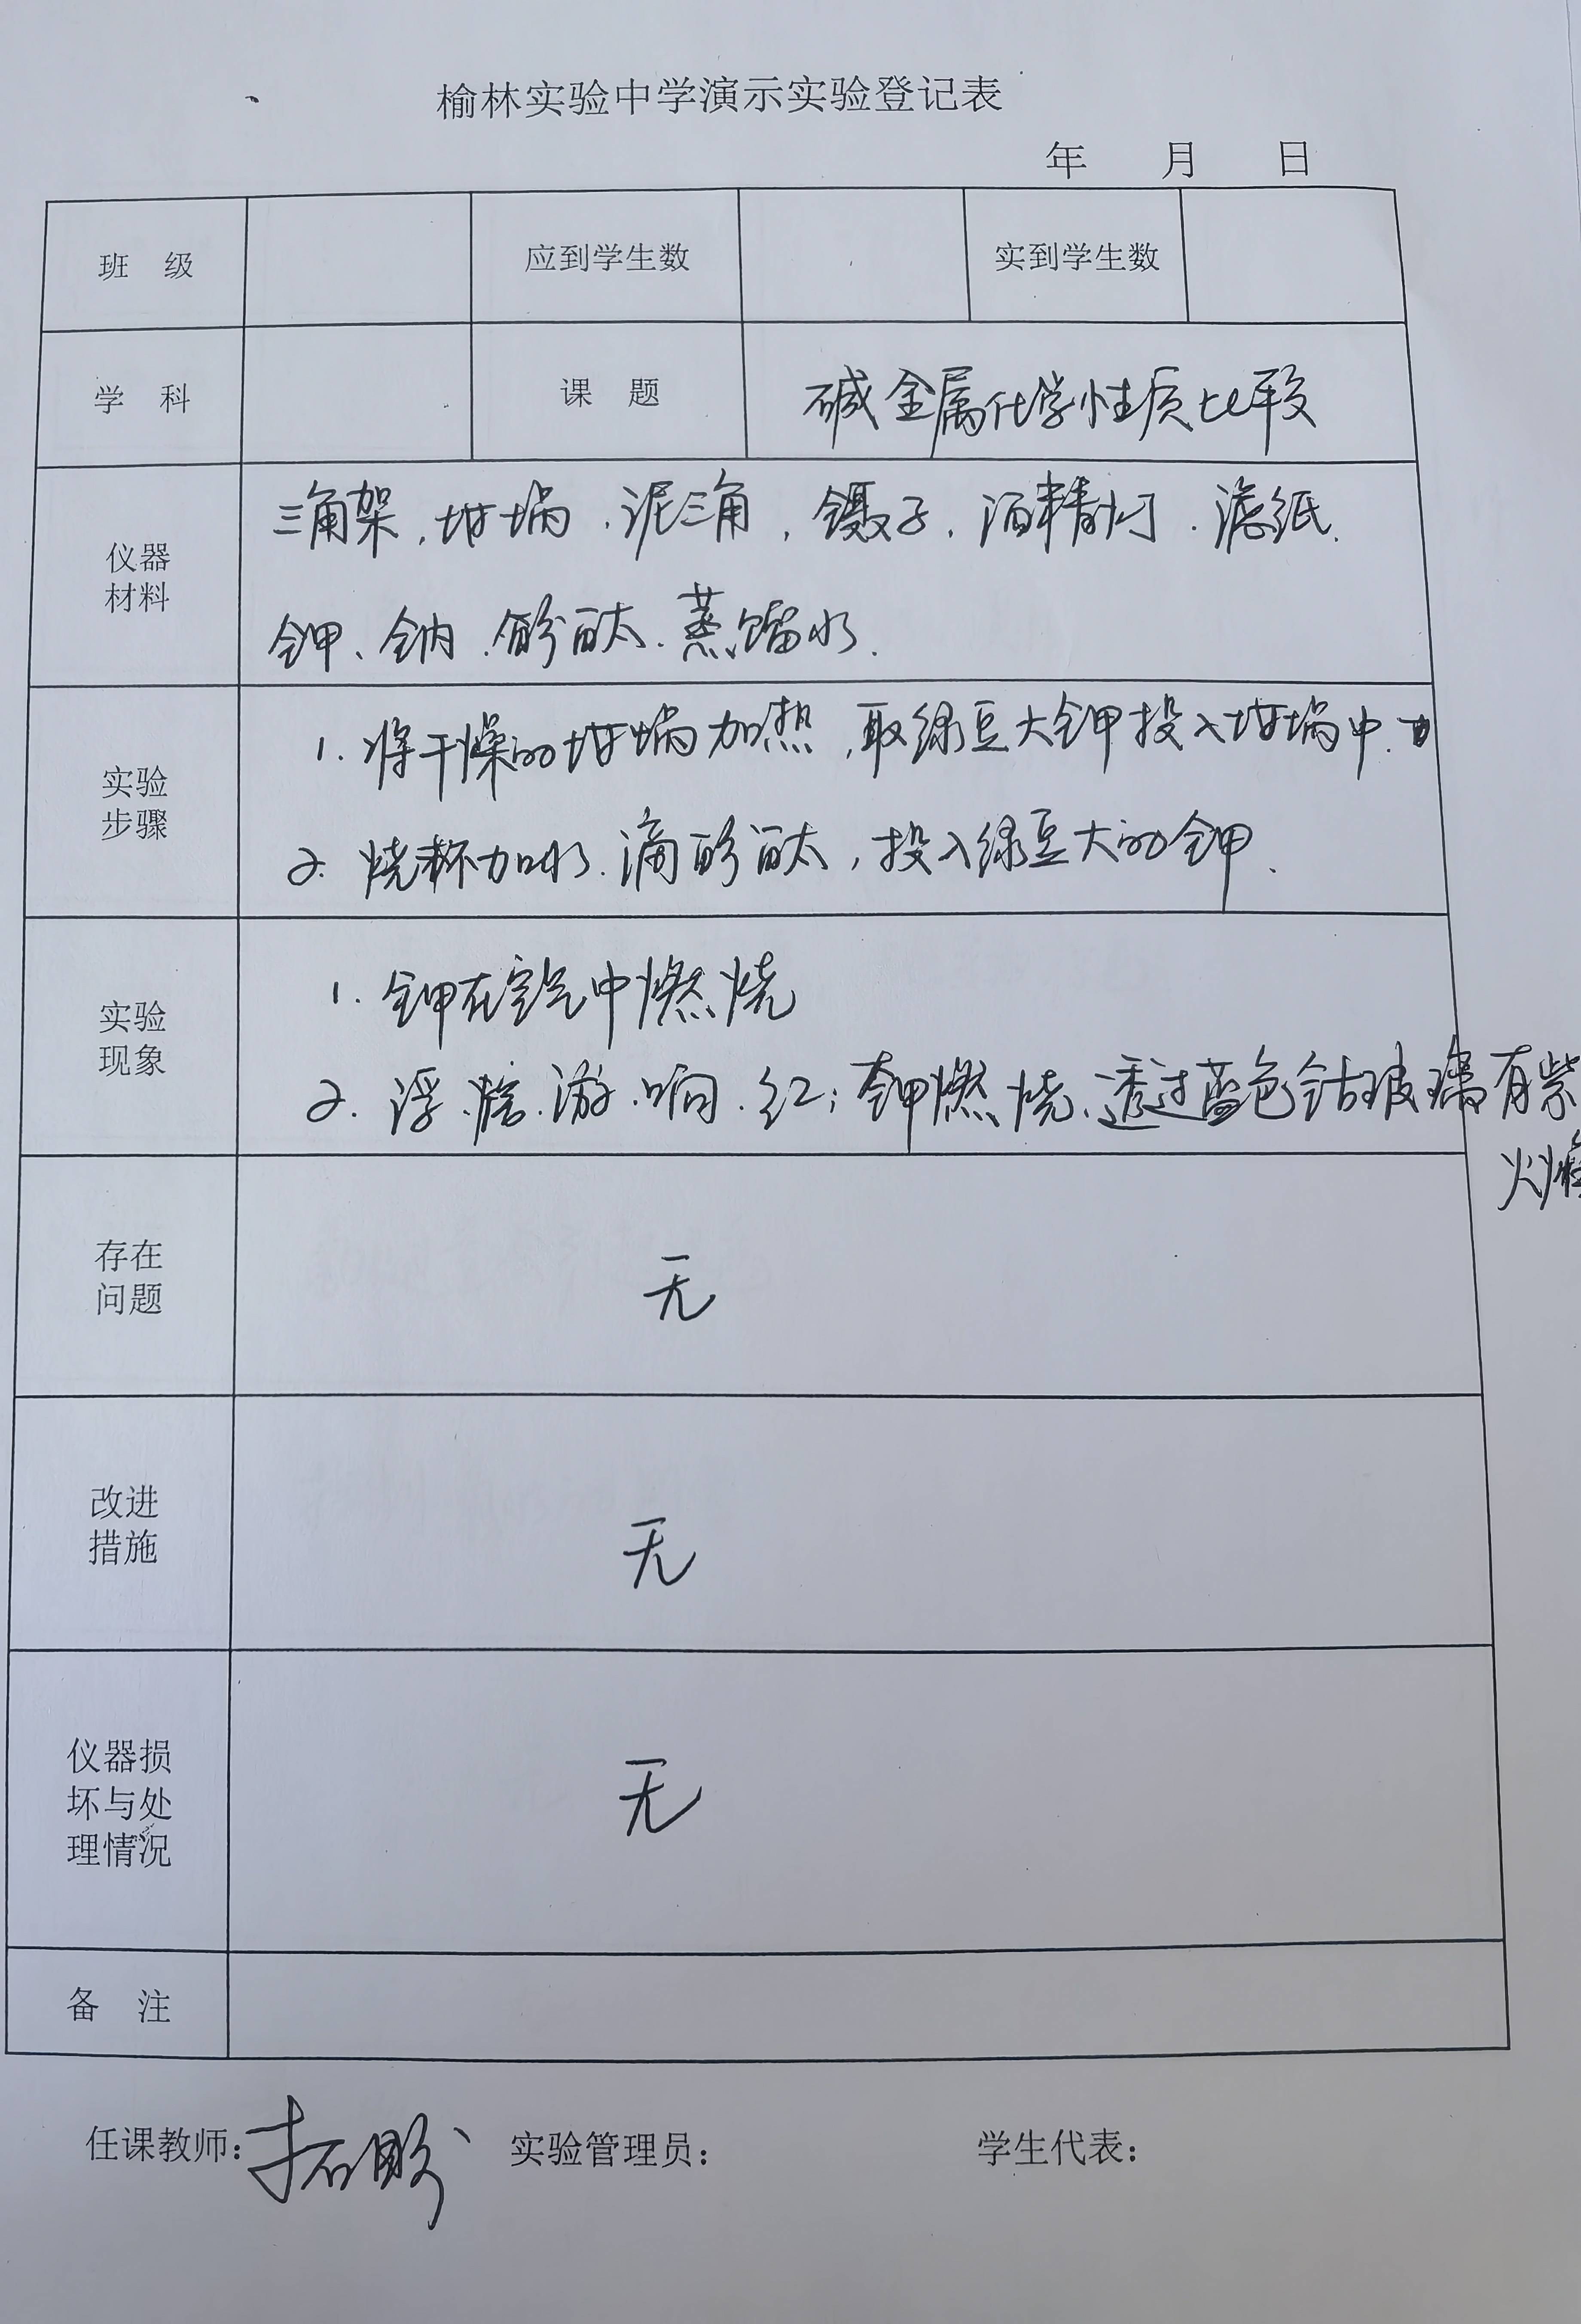 榆林实验中学演示实验登记表
年 月 日
班 级 应到学生数 实到学生数
学 科 课 题 碱金属化学性质比较
仪器
材料
三角架,坩埚.泥三角,镊子.酒精灯.滤纸.
钾、钠.酚酞.蒸馏水.
实验
步骤
1.将干燥的坩埚加热,取绿豆大钾投入坩埚中.
2.烧杯加水.滴酚酞,投入绿豆大的钾.
实验
现象
1.钾在空气中燃烧
2.浮.熔.游.响.红;钾燃烧、透过蓝色钴玻璃有紫
火焰
存在
问题
无
改进
措施
无
仪器损
坏与处
理情况
无
备 注
任课教师: 实验管理员: 学生代表: